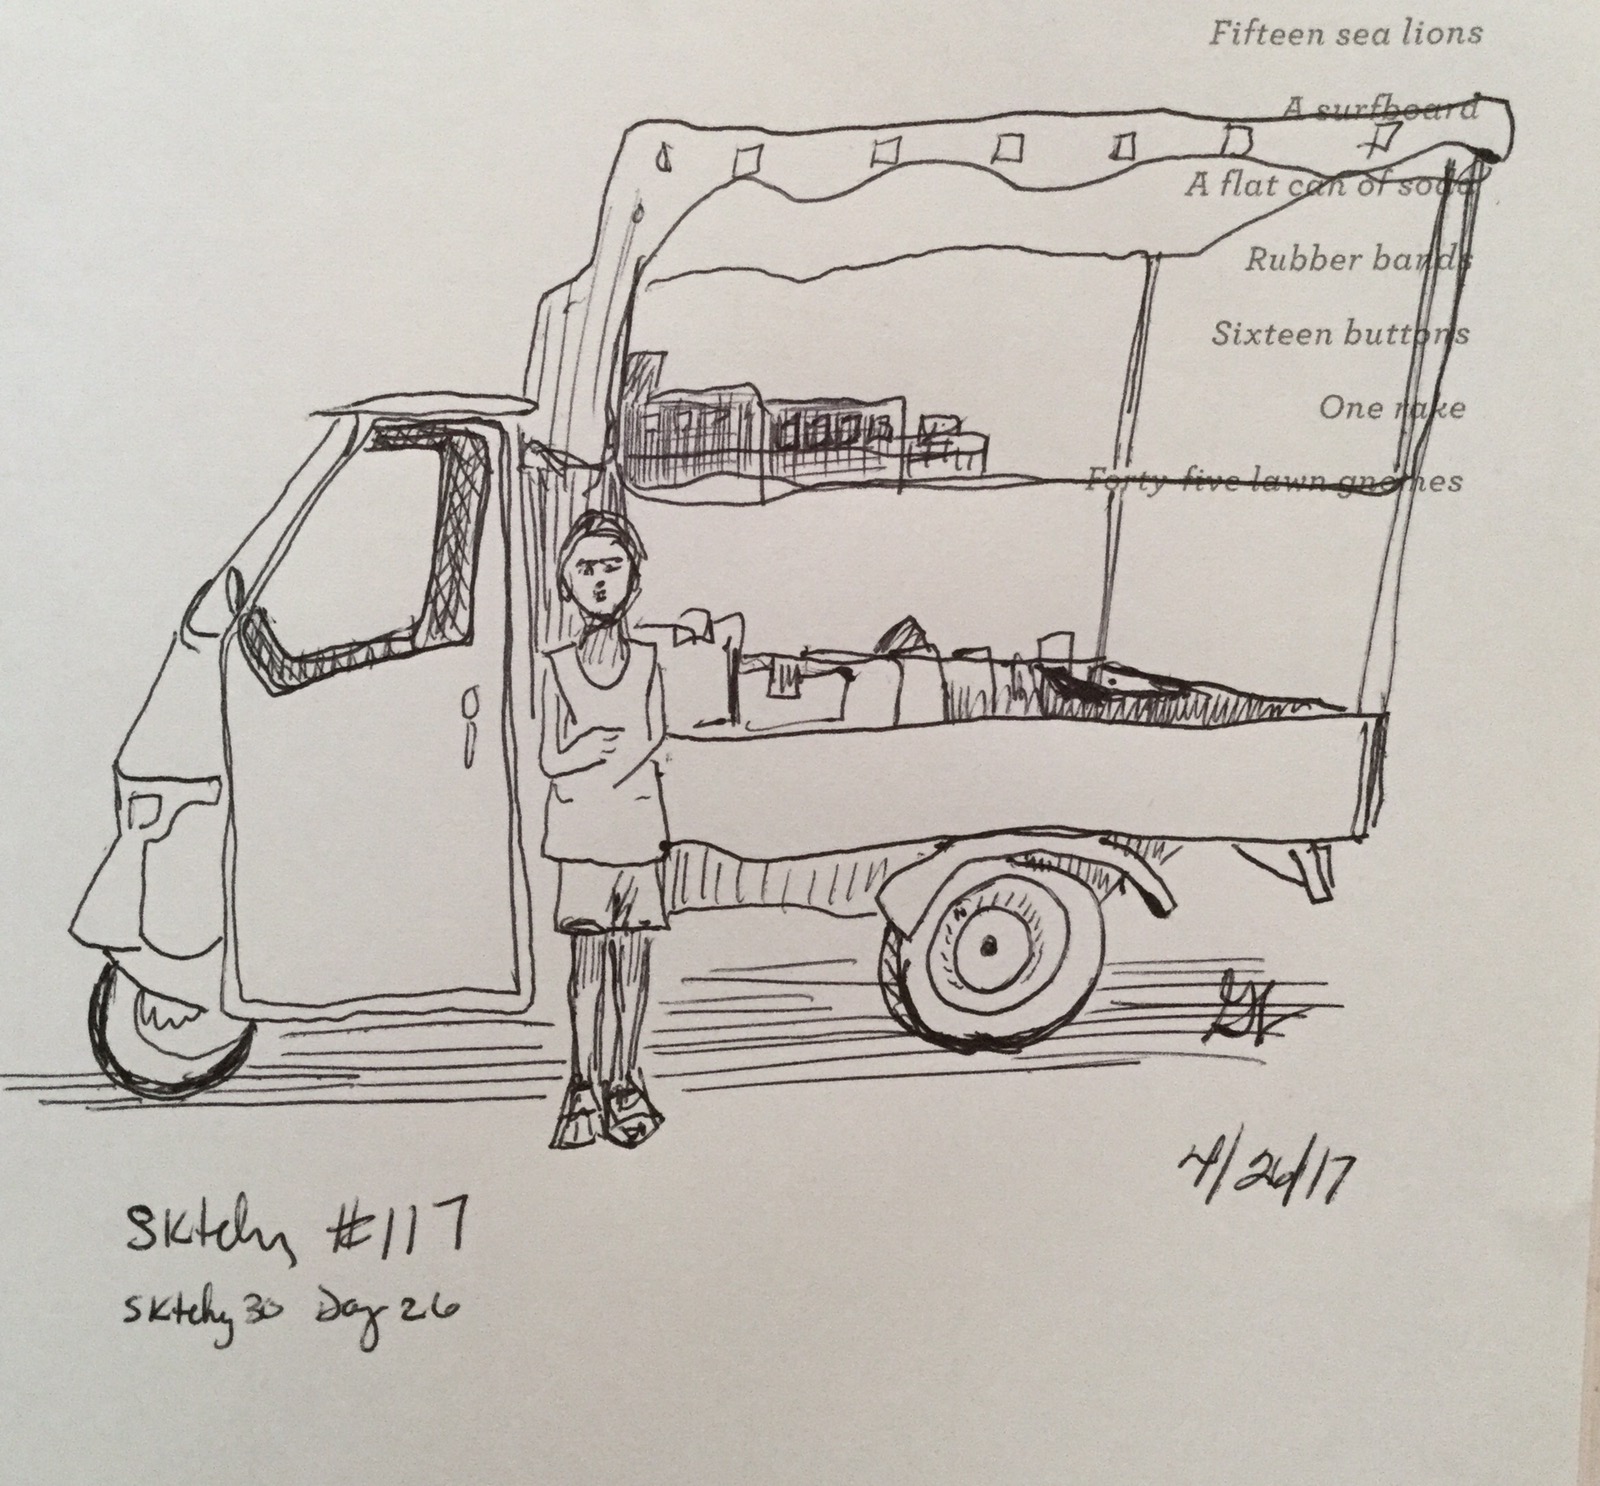 Fifteen sea lions
A surfboard
A flat can of soda
Rubber bands
Sixteen buttons
One rake
Forty-five lawn gnomes
4/26/17
Sktchy #117
Sktchy30 Day 26